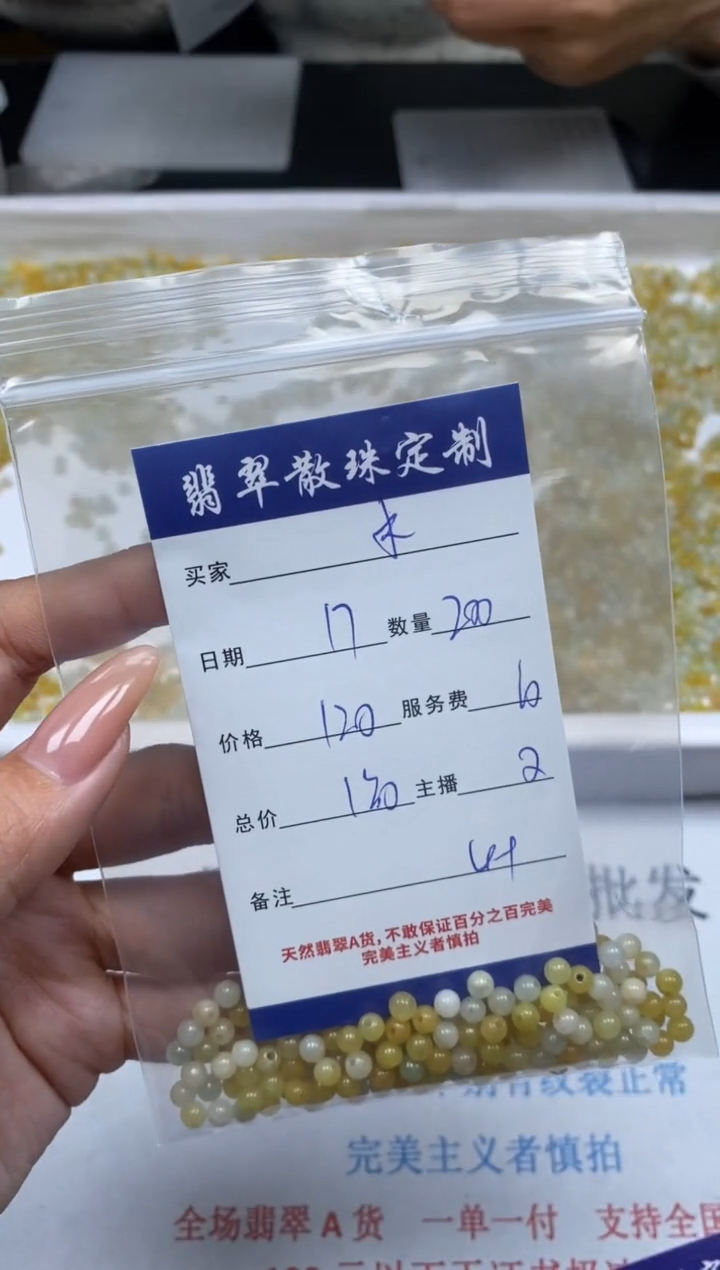 翡翠散珠定制
买家 水
日期 17 数量 200
价格 120 服务费 10
总价 130 主播 2
备注
天然翡翠A货,不敢保证百分之百完美
完美主义者慎拍
批发
纹裂正常
完美主义者慎拍
全场翡翠A货 一单一付 支持全国